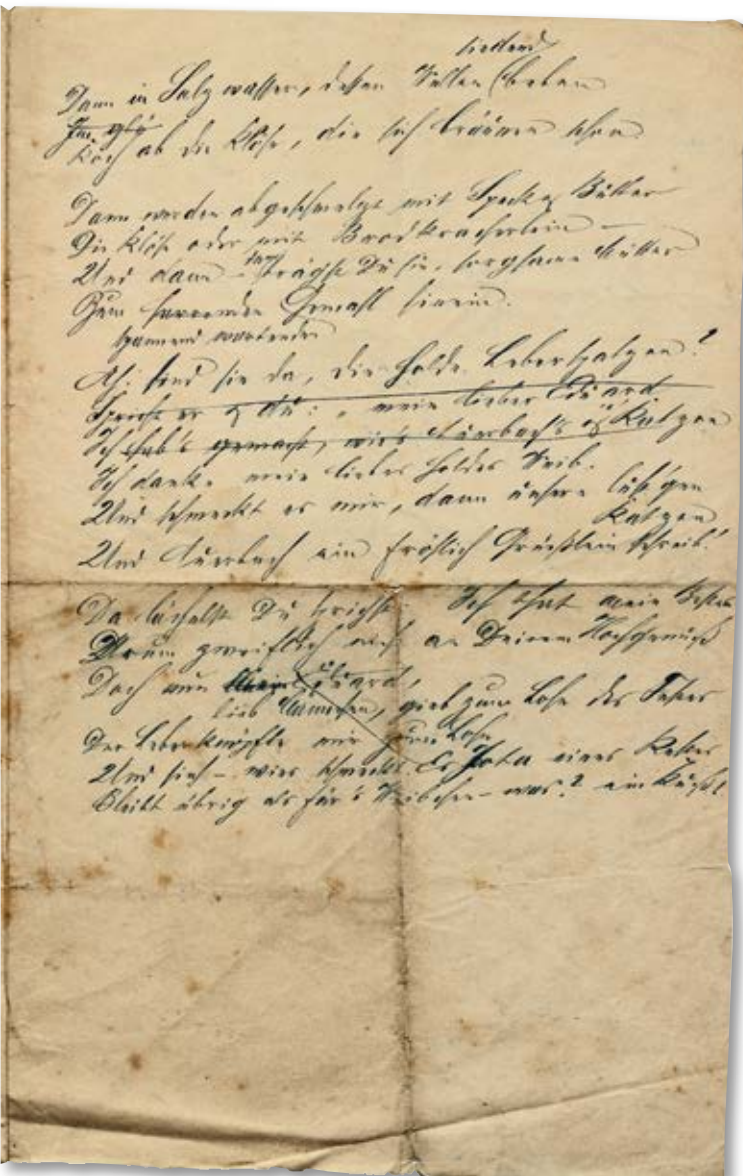 siedend
Dann in Salzwasser, dessen Wellen beben
Koch ab die Klöße, die sich bräunen schon.
Dann werden abgeschmelzt mit Speck & Butter
Die Klöße oder mit Brodkrächerlein –
Und dann – trägst Du sie, sorgsame Mutter
Zum harrenden Gemahl hinein.
spannend wartenden
Ah! sind sie da, die holde Leberspatzen!
Spricht er & du: „mein lieber Eduard
Ich hab's gemacht, wie's Auerbach's & Katzen
Ich danke mein liebes holdes Weib.
Und schmeckt es mir, dann unsern lust'gen
Katzen
Und Auerbach ein fröhlich Grüßlein schreib!
Da lächelst Du sprichst: Ich that mein Bestes
Drum zweifl' ich nicht an Deinem Hochgenuß
Doch nun Eduard,
lieb Männchen, gieb zum Lohn des Festes
Der Leberknöpfle mir zum Lohn
Und sieh – wie's schmeckt. Kein Jota eines Restes
Bleibt übrig als für's Weibchen – was? ein Kuß!